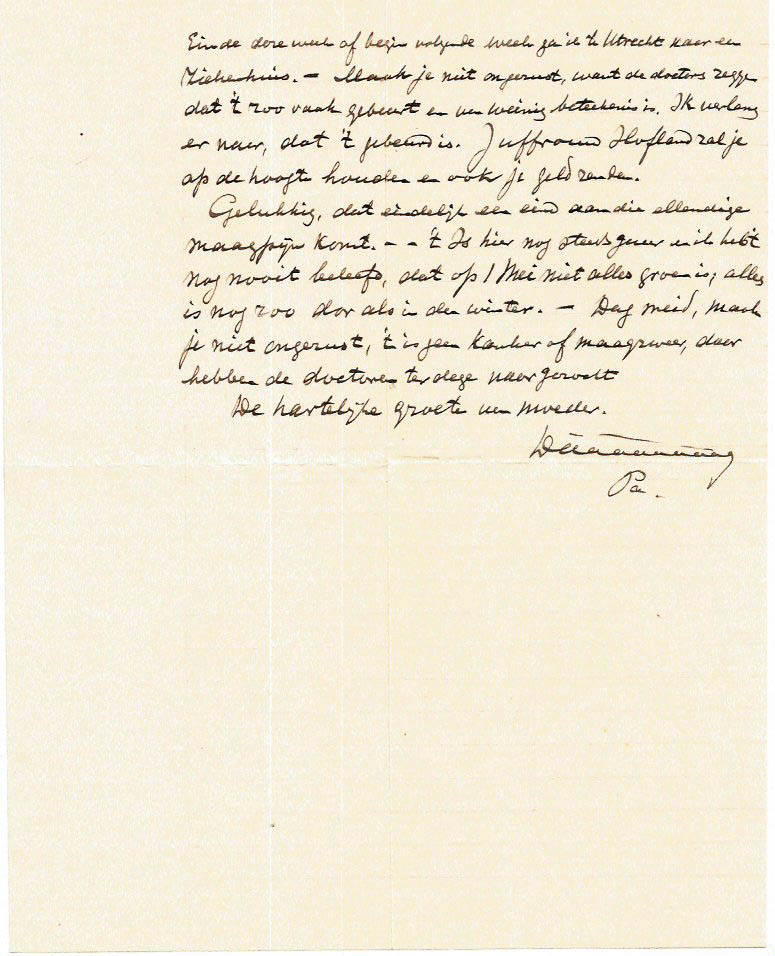 Einde deze week of begin volgende week ga ik te Utrecht naar een
Ziekenhuis. – Maak je niet ongerust, want de doctors zeggen
dat 't zoo vaak gebeurt en van weinig beteekenis is. Ik verlang
er naar, dat 't gebeurd is. Juffrouw Hofland zal je
op de hoogte houden en ook je geld zenden.
Gelukkig, dat eindelijk een eind aan die ellendige
maagpijn komt. – – 't Is hier nog steeds guur en ik heb 't
nog nooit beleefd, dat op 1 Mei niet alles groen is; alles
is nog zoo dor als in den winter. – Dag meid, maak
je niet ongerust, 't is geen kanker of maagzweer, daar
hebben de doctoren terdege naar gezocht
De hartelijke groeten van moeder.
Daaaaaaaaag
Pa.